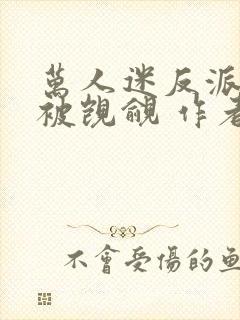 萬人迷反派
被覬覦 作者
不會受傷的魚